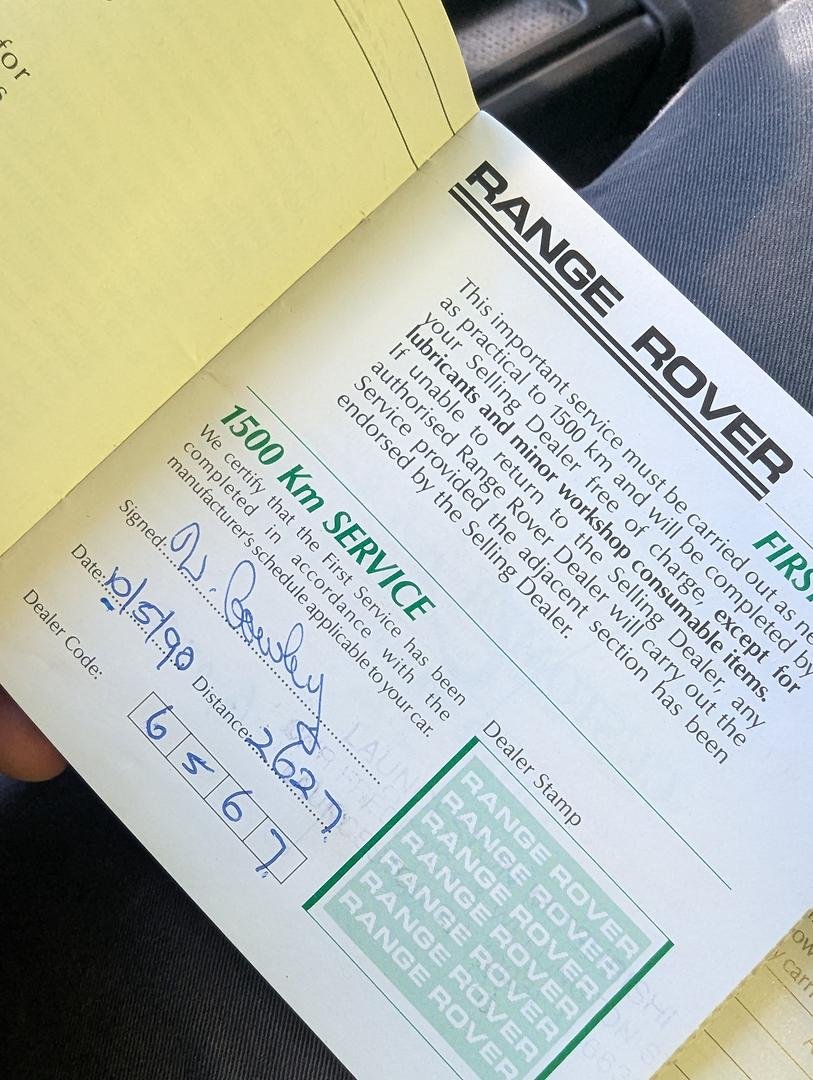 for
s
RANGE ROVER
FIRS
This important service must be carried out as ne
as practical to 1500 km and will be completed by
your Selling Dealer free of charge, except for
lubricants and minor workshop consumable items.
If unable to return to the Selling Dealer, any
authorised Range Rover Dealer will carry out the
Service provided the adjacent section has been
endorsed by the Selling Dealer.
1500 Km SERVICE
We certify that the First Service has been
completed in accordance with the
manufacturer's schedule applicable to your car.
Signed:
Date: 10/5/90 Distance: 2627
Dealer Code: 6567
Dealer Stamp
RANGE ROVER
RANGE ROVER
RANGE ROVER
RANGE ROVER
RANGE ROVER
RANGE ROVER